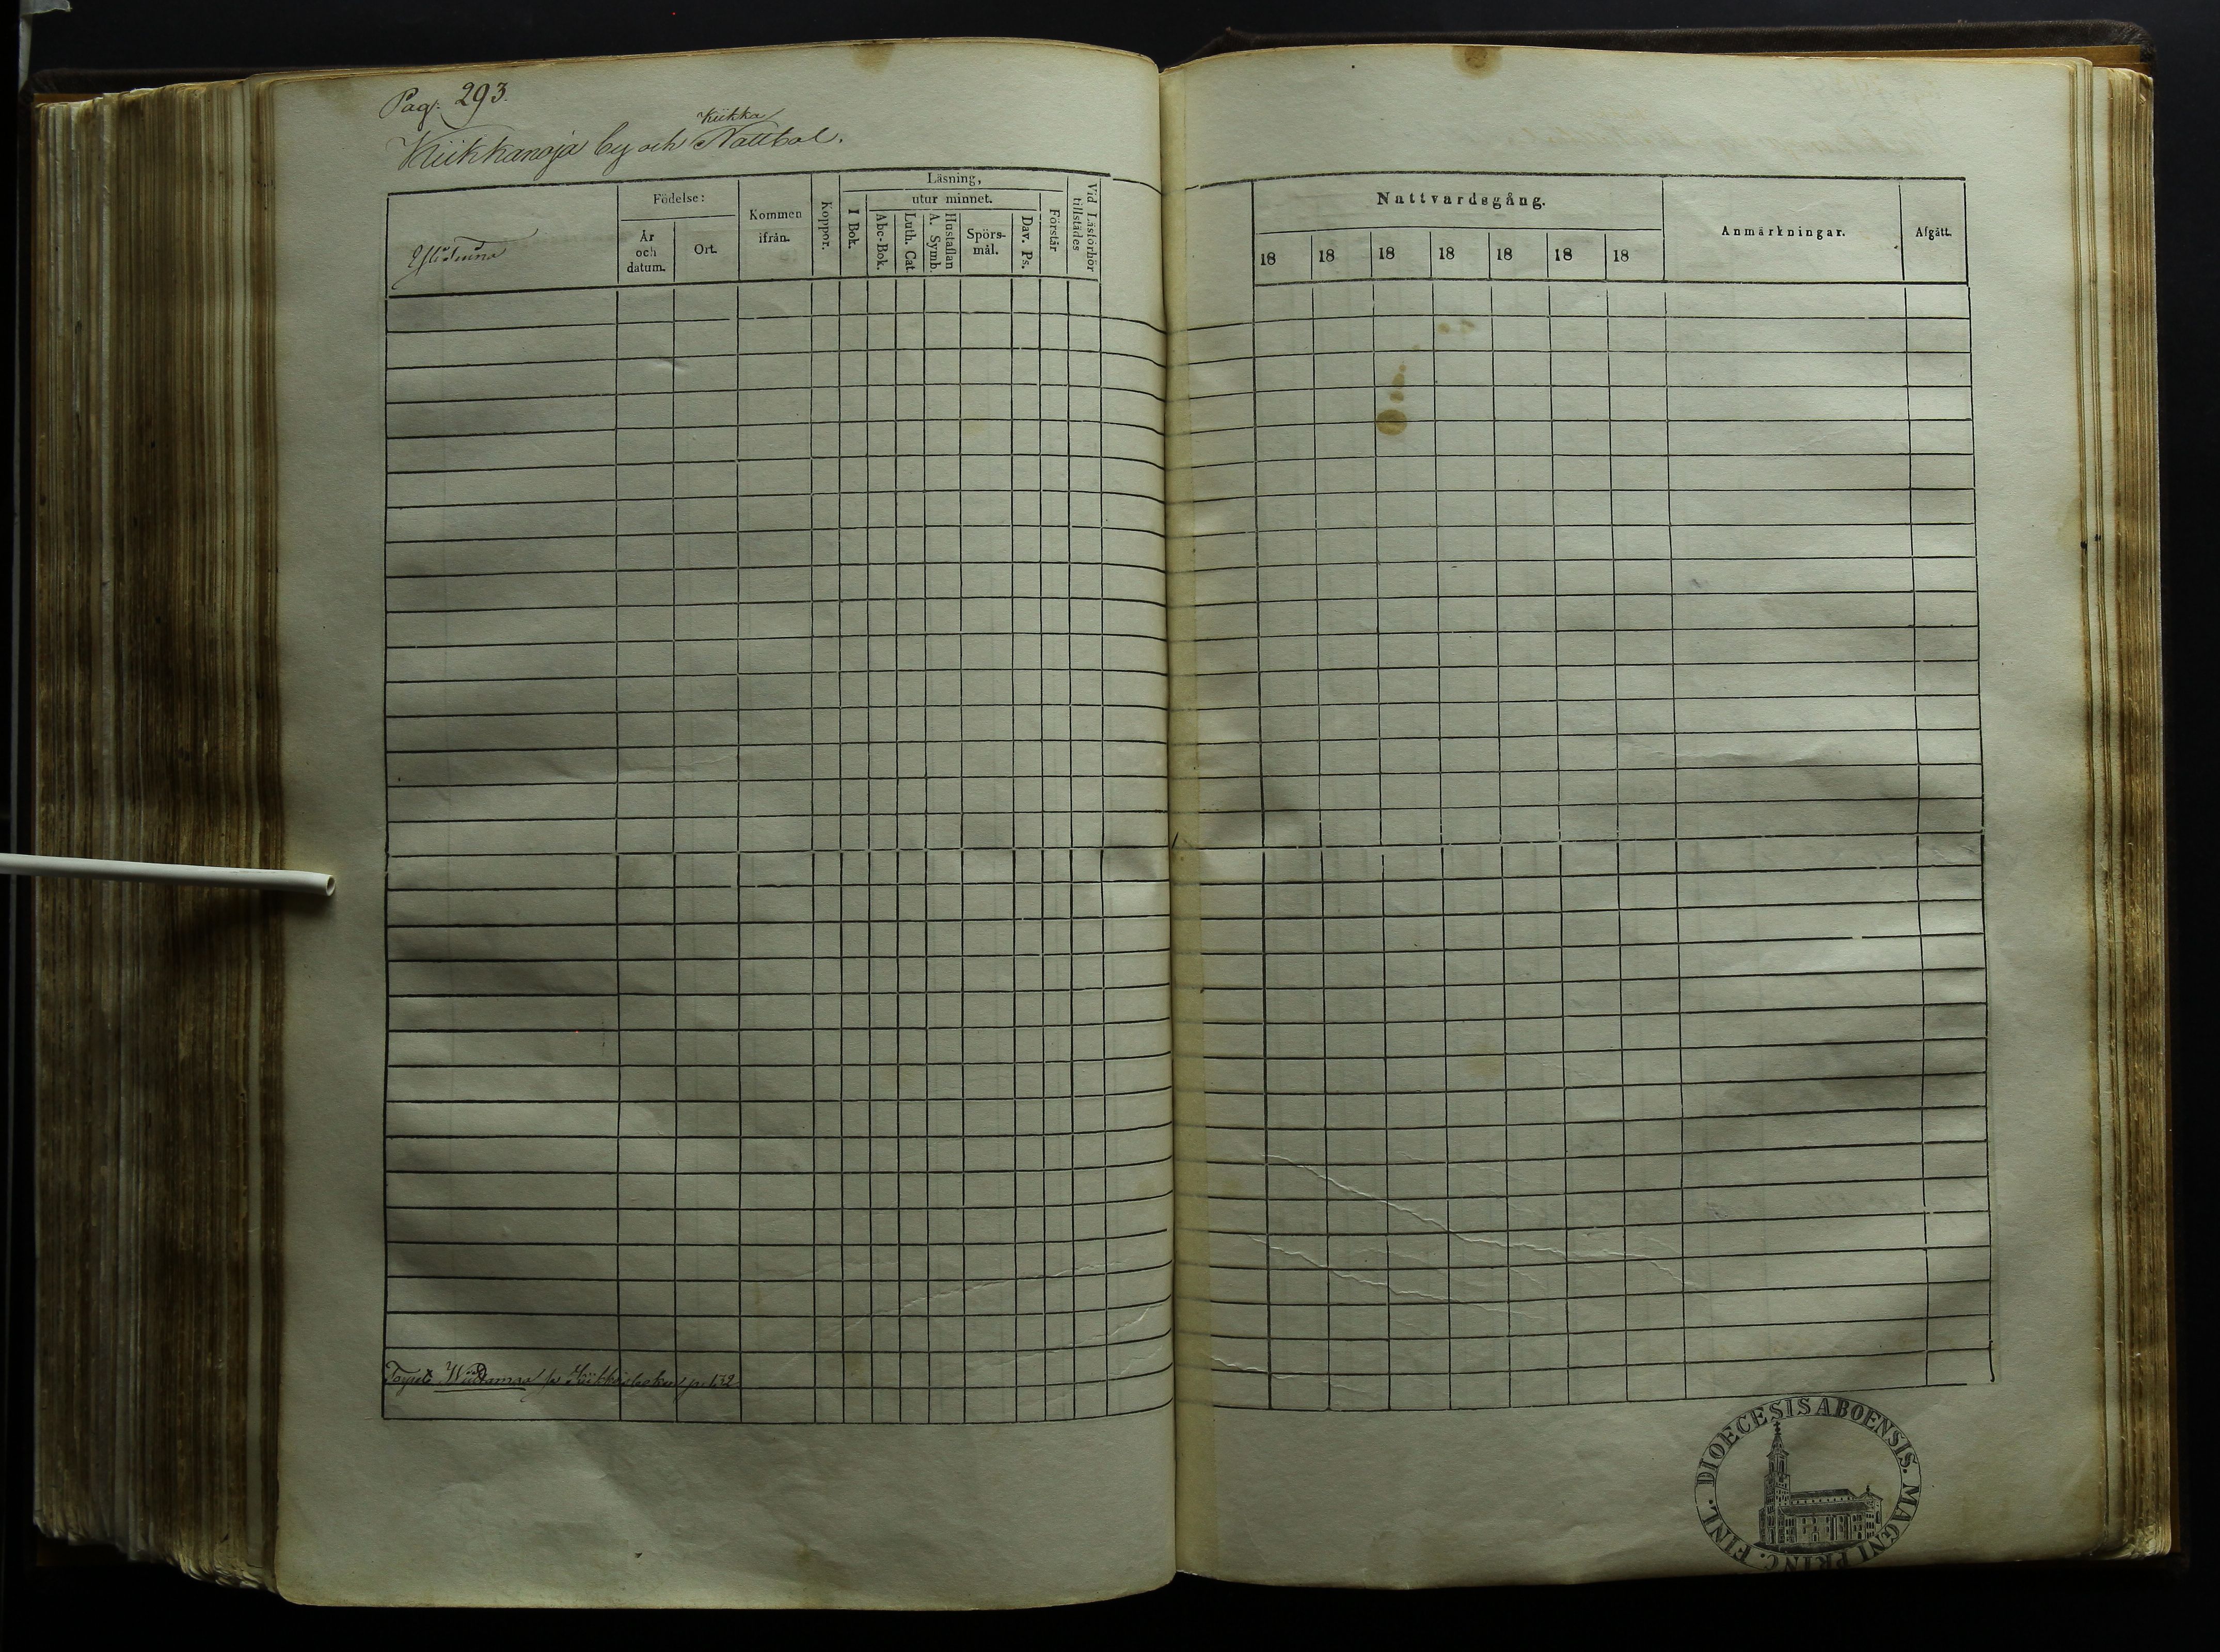 Pag. 293.
Kiikka
Kiikkanoja by och Nattbol.
Födelse:
År och datum.
Ort.
Kommen ifrån.
Koppor.
Läsning,
I Bok.
utur minnet.
Abc-Bok.
Luth. Cat.
Hustaflan A. Symb.
Spörs-mål.
Dav. Ps.
Förstår
Vid Läsförhör tillstädes
Nattvardsgång.
18 18 18 18 18 18 18
Anmärkningar.
Afgått.
p. 132
DIOECESIS ABOENSIS. MAGNI PRINC. FINL.